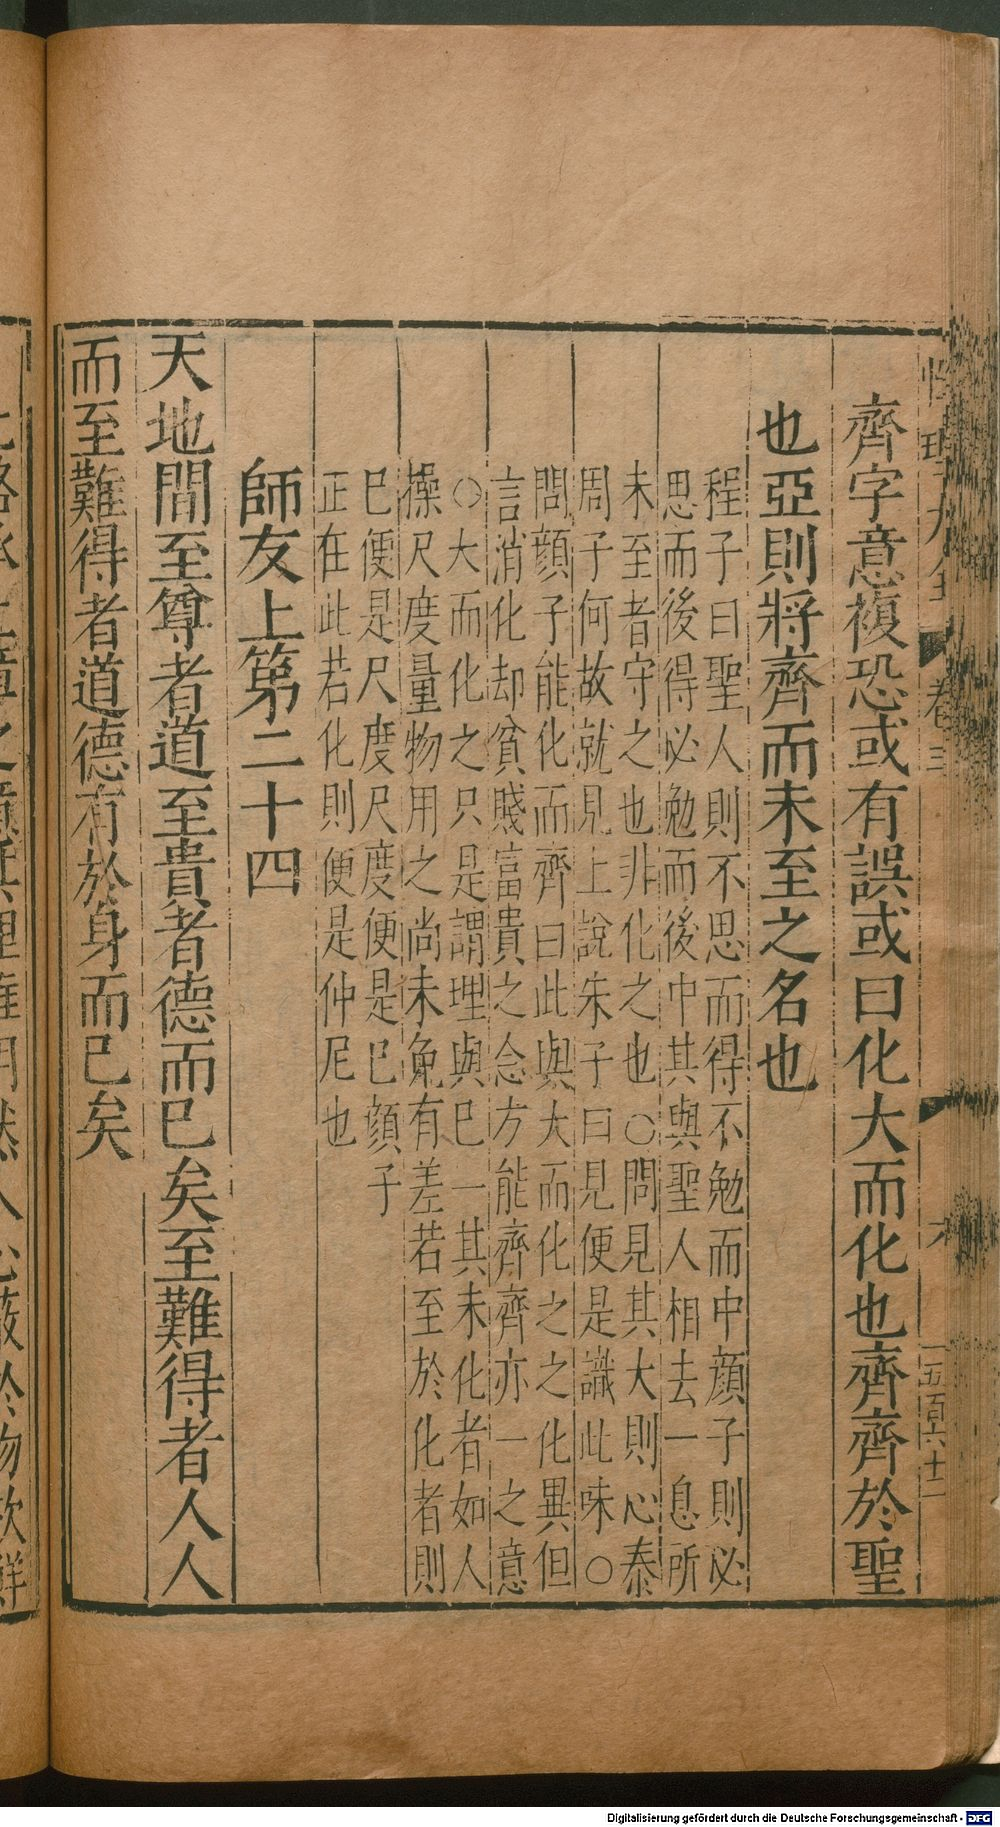 性理大全 卷三 六 一五百六十一
齊字意複恐或有誤或曰化大而化也齊齊於聖
也亞則將齊而未至之名也
程子曰聖人則不思而得不勉而中顔子則必
思而後得必勉而後中其與聖人相去一息所
未至者守之也非化之也○問見其大則心泰
周子何故就見上說朱子曰見便是識此味○
問顔子能化而齊曰此與大而化之之化異但
言消化却貧賤富貴之念方能齊齊亦一之意
○大而化之只是謂理與已一其未化者如人
操尺度量物用之尚未免有差若至於化者則
已便是尺度尺度便是已顔子
正在此若化則便是仲尼也
師友上第二十四
天地間至尊者道至貴者德而已矣至難得者人人
而至難得者道德有於身而已矣
Digitalisierung gefördert durch die Deutsche Forschungsgemeinschaft - DFG